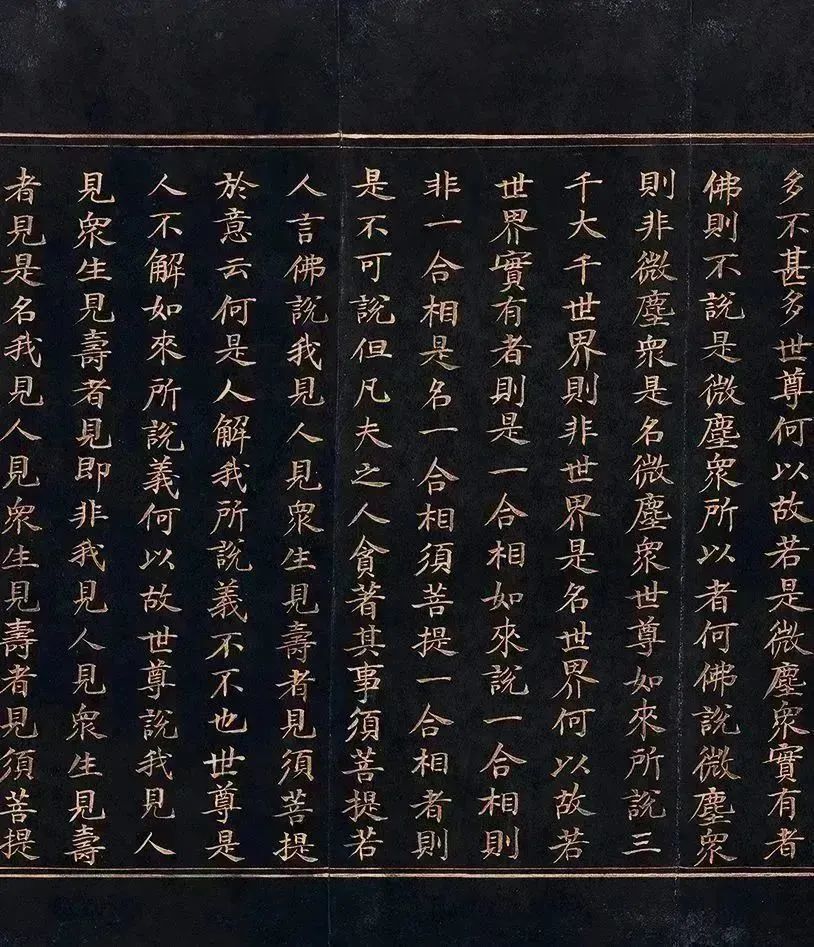 多不甚多世尊何以故若是微塵眾實有者
佛則不說是微塵眾所以者何佛說微塵眾
則非微塵眾是名微塵眾世尊如來所說三
千大千世界則非世界是名世界何以故若
世界實有者則是一合相如來說一合相則
非一合相是名一合相須菩提一合相者則
是不可說但凡夫之人貪著其事須菩提若
人言佛說我見人見眾生見壽者見須菩提
於意云何是人解我所說義不不也世尊是
人不解如來所說義何以故世尊說我見人
見眾生見壽者見即非我見人見眾生見壽
者見是名我見人見眾生見壽者見須菩提